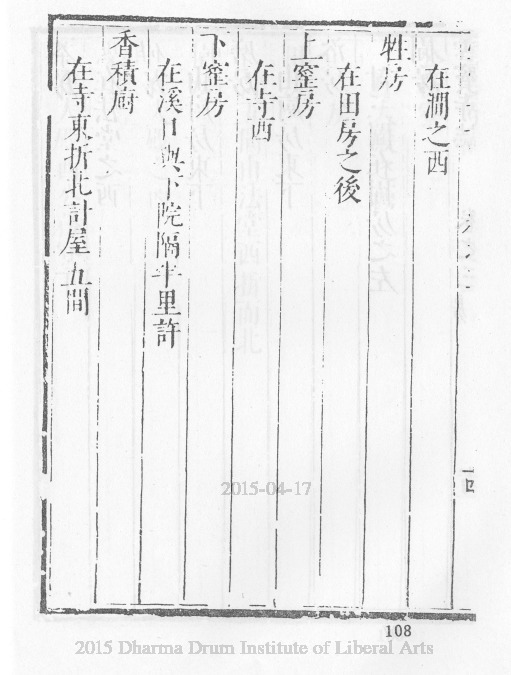 在澗之西
牲房
在田房之後
上窰房
在寺西
下窰房
在溪口與下院隔半里許
香積廚
在寺東折北計屋五間
2015-04-17
108
2015 Dharma Drum Institute of Liberal Arts